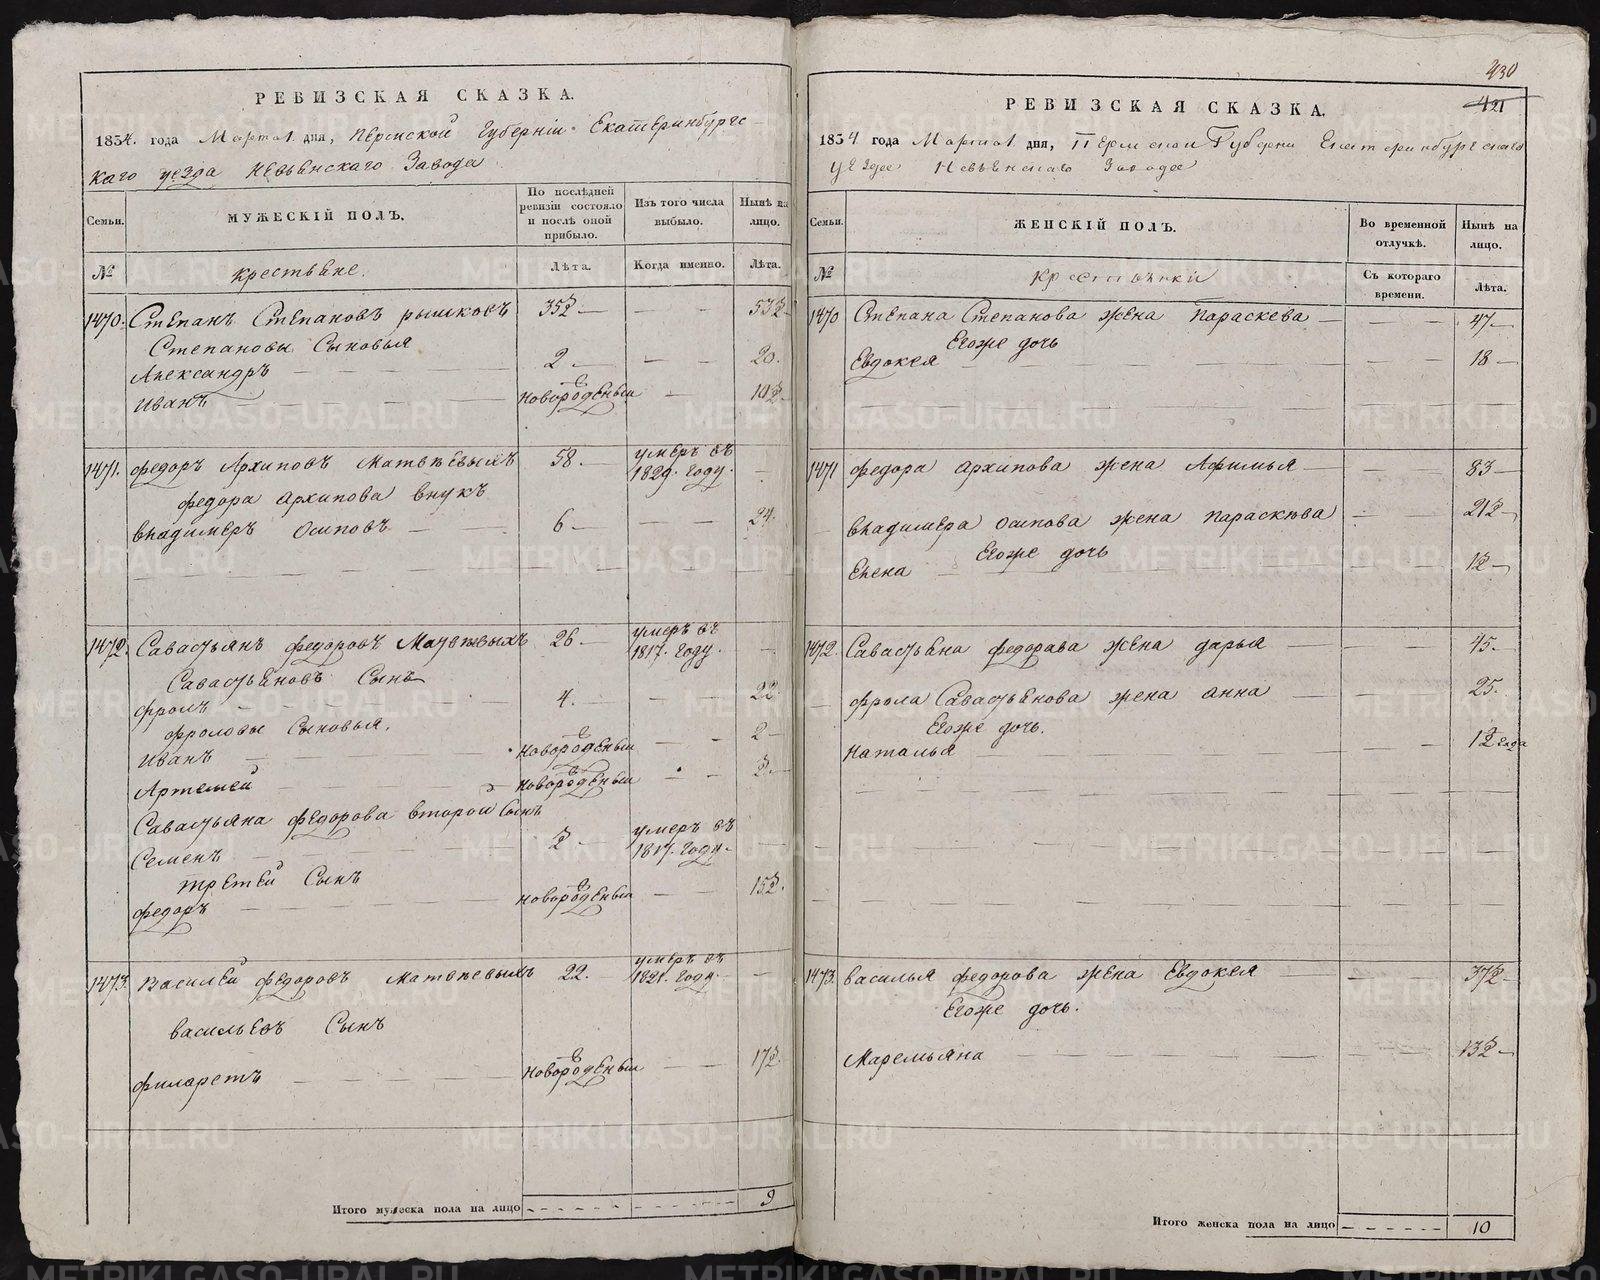 РЕВИЗСКАЯ СКАЗКА.
1834. года Марта 1 дня, Пермской Губерніи Екатеринбургс-
каго уезда Невьянскаго Завода
Семьи.
МУЖЕСКІЙ ПОЛЪ.
По послѣдней ревизіи состояло и послѣ оной прибыло.
Изъ того числа выбыло.
Нынѣ на лицо.
№
крестьяне.
Лѣта.
Когда именно.
Лѣта.
1470. Степанъ Степановъ рышковъ 35½ — — — 53½
Степановы Сыновья
Александръ — — 2 — — — 20.
Иванъ — — новороденыи — 10½
1471. федоръ Архиповъ Матвѣевыхъ 58. умеръ въ 1829. году. —
федора архипова внукъ
владимеръ осиповъ — 6 — — — 24.
1472. Савастьянъ федоровъ Матвѣевыхъ 26 — умеръ въ 1817. году. —
Савастьяновъ Сынъ
фролъ — — 4. — — 22
фроловы Сыновья.
Иванъ — новороденыи — — 2 —
Артемей — новороденыи — — ½ —
Савастьяна федорова второй Сынъ
Семенъ — ½ — умеръ въ 1817. году. —
третей Сынъ
федоръ — — новороденыи — — 15½.
1473. Василей федоровъ Матвѣевыхъ 22. умеръ въ 1821. году. —
васильевъ Сынъ
филаретъ — — новороденыи — — 17½
Итого мужеска пола на лицо 9
430
421
РЕВИЗСКАЯ СКАЗКА.
1834 года Марта 1 дня, Пермской Губерни Екатеринбургскаго
уездее Невьенскаго Заводее
Семьи.
ЖЕНСКІЙ ПОЛЪ.
Во временной отлучкѣ.
Нынѣ на лицо.
№
Крестьянки
Съ котораго времени.
Лѣта.
1470 Степана Степанова жена параскева — — — 47 —
Егоже дочь
Евдокея — — 18 —
1471 федора архипова жена Афимья — — 83 —
владимера осипова жена параскѣва — — 21½ —
Егоже дочь
Елена — — 1½ —
1472. Савастьяна федорава жена дарья — — 45 —
фрола Савастьянова жена анна — — 25.
Егоже дочь.
Наталья — — 1½ года
1473. василья федорова жена Евдокея — — 37½ —
Егоже дочь.
Маремьяна — — 13½ —
Итого женска пола на лицо 10
METRIKI.GASO-URAL.RU